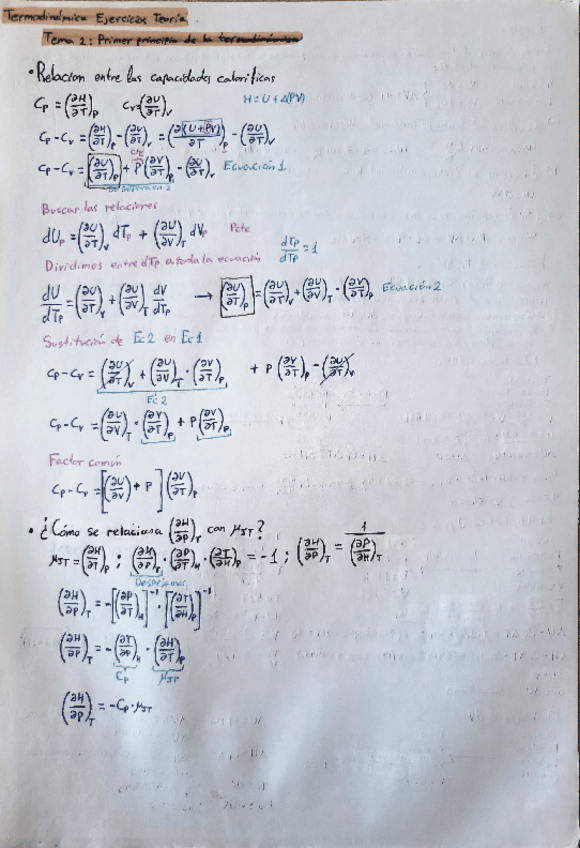 Termodinámica Ejercicios Teoría
Tema 2: Primer principio de la termodinámica
• Relacion entre las capacidades calorificas
Cp = (∂H/∂T)p   Cv = (∂U/∂T)v   H = U + Δ(PV)
Cp - Cv = (∂H/∂T)p - (∂U/∂T)v = (∂(U+PV)/∂T)p - (∂U/∂T)v
cte
Cp - Cv = (∂U/∂T)p + P(∂V/∂T)p - (∂U/∂T)v   Ecuación 1
Buscar las relaciones
dUp = (∂U/∂T)v dTp + (∂U/∂V)T dVp   Pcte
Dividimos entre dTp a toda la ecuación   dTp/dTp = 1
dU/dTp = (∂U/∂T)v + (∂U/∂V)T dV/dTp → (∂U/∂T)p = (∂U/∂T)v + (∂U/∂V)T · (∂V/∂T)p   Ecuación 2
Sustitución de Ec2 en Ec1
Cp - Cv = (∂U/∂T)v + (∂U/∂V)T · (∂V/∂T)p + P(∂V/∂T)p - (∂U/∂T)v
Ec 2
Cp - Cv = (∂U/∂V)T · (∂V/∂T)p + P(∂V/∂T)p
Factor común
Cp - Cv = [(∂U/∂V) + P](∂V/∂T)p
• ¿Cómo se relaciona (∂H/∂P)T con μJT?
μJT = (∂H/∂T)p ; (∂H/∂P)T · (∂P/∂T)H · (∂T/∂H)p = -1 ; (∂H/∂P)T = 1/(∂P/∂H)T
Despejamos
(∂H/∂P)T = -[(∂P/∂T)H]⁻¹ · [(∂T/∂H)p]⁻¹
(∂H/∂P)T = -(∂T/∂P)H · (∂H/∂T)p
Cp   μJT
(∂H/∂P)T = -Cp · μJT